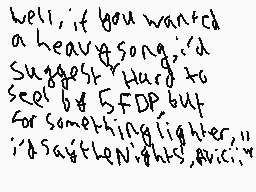 well, if you wanted
a heavy song, i'd
suggest "Hard to
see" by 5FDP, but
for something lighter,
i'd say "the Nights", avicii"